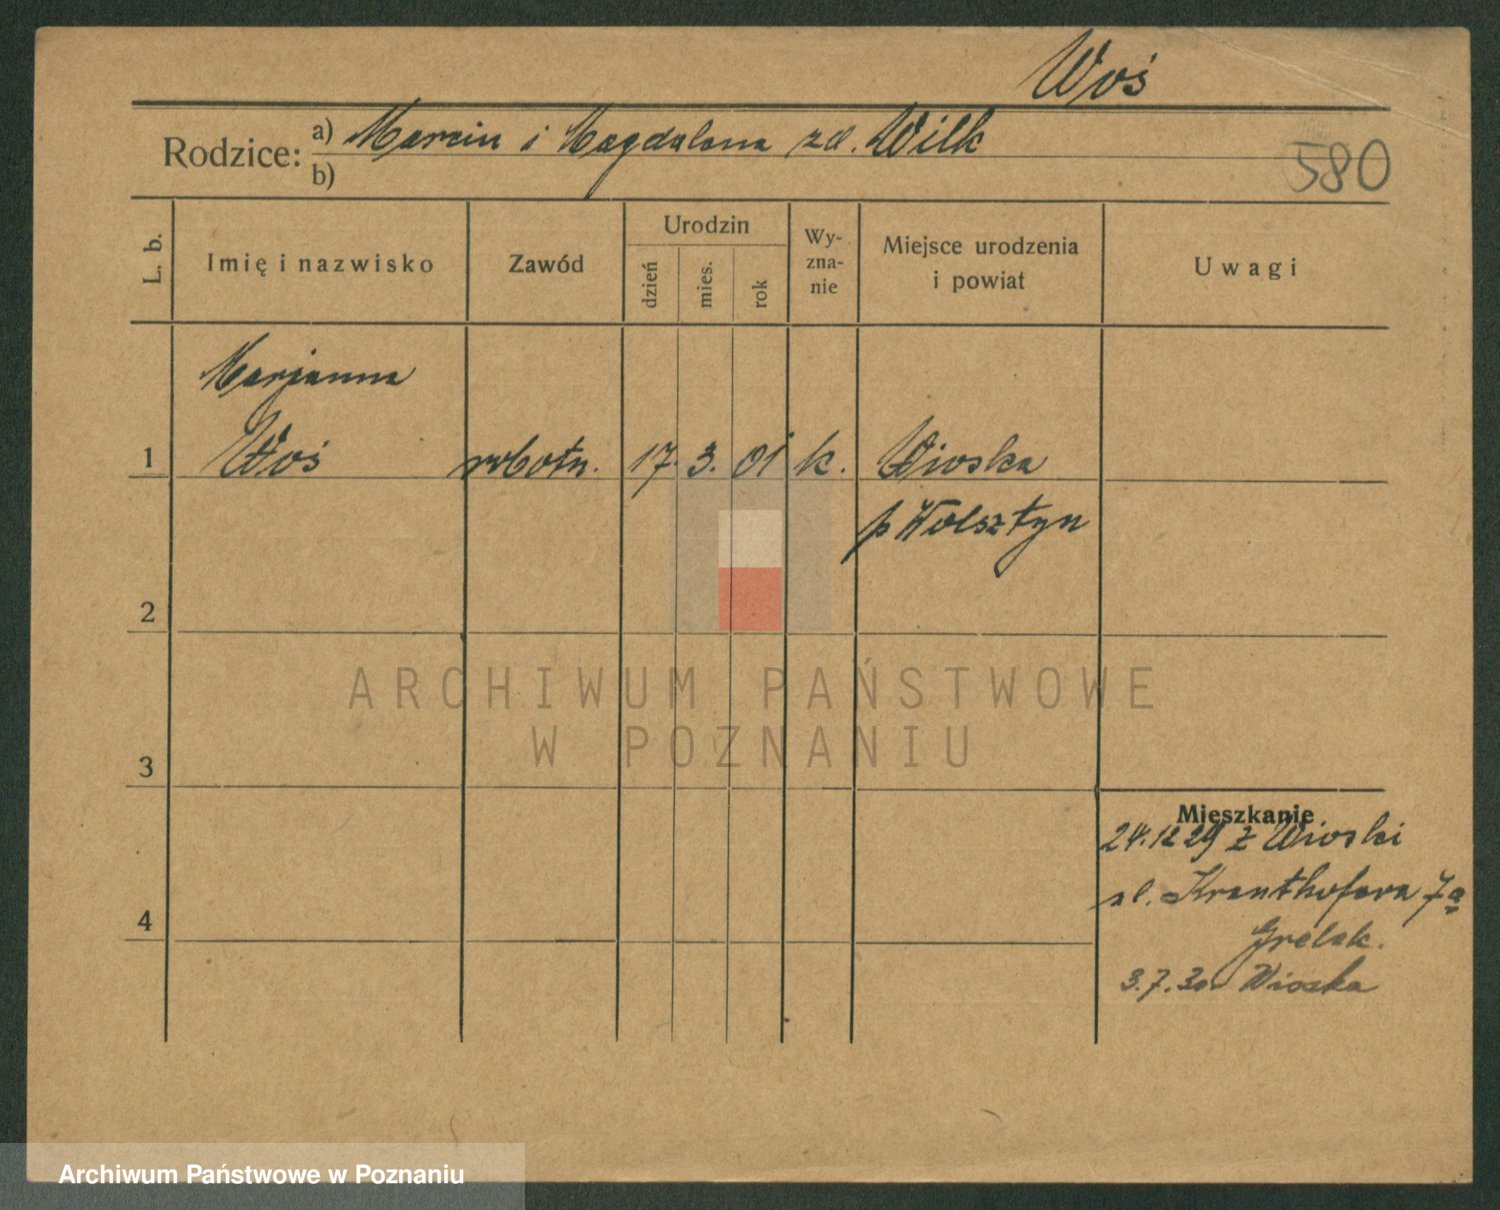 Woś
Rodzice: a) Marcin i Magdalena zd. Wilk
b)
580
L. b.
Imię i nazwisko
Zawód
Urodzin
dzień
mies.
rok
Wy-
zna-
nie
Miejsce urodzenia
i powiat
Uwagi
Marjanna
1 Woś robotn. 17. 3. 01 k. Wioska
p Wolsztyn
2
3
4
Mieszkanie
24.12 29 z Wioski
ul. Krauthofera 7a
Grelak.
3.7.30 Wioska
ARCHIWUM PAŃSTWOWE
W POZNANIU
Archiwum Państwowe w Poznaniu